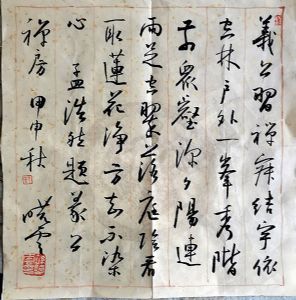 義公習禪寂結宇依
空林戶外一峯秀階
前眾壑深夕陽連
雨足空翠落庭陰看
取蓮花淨方知不染
心 孟浩然題義公
禪房 甲申秋